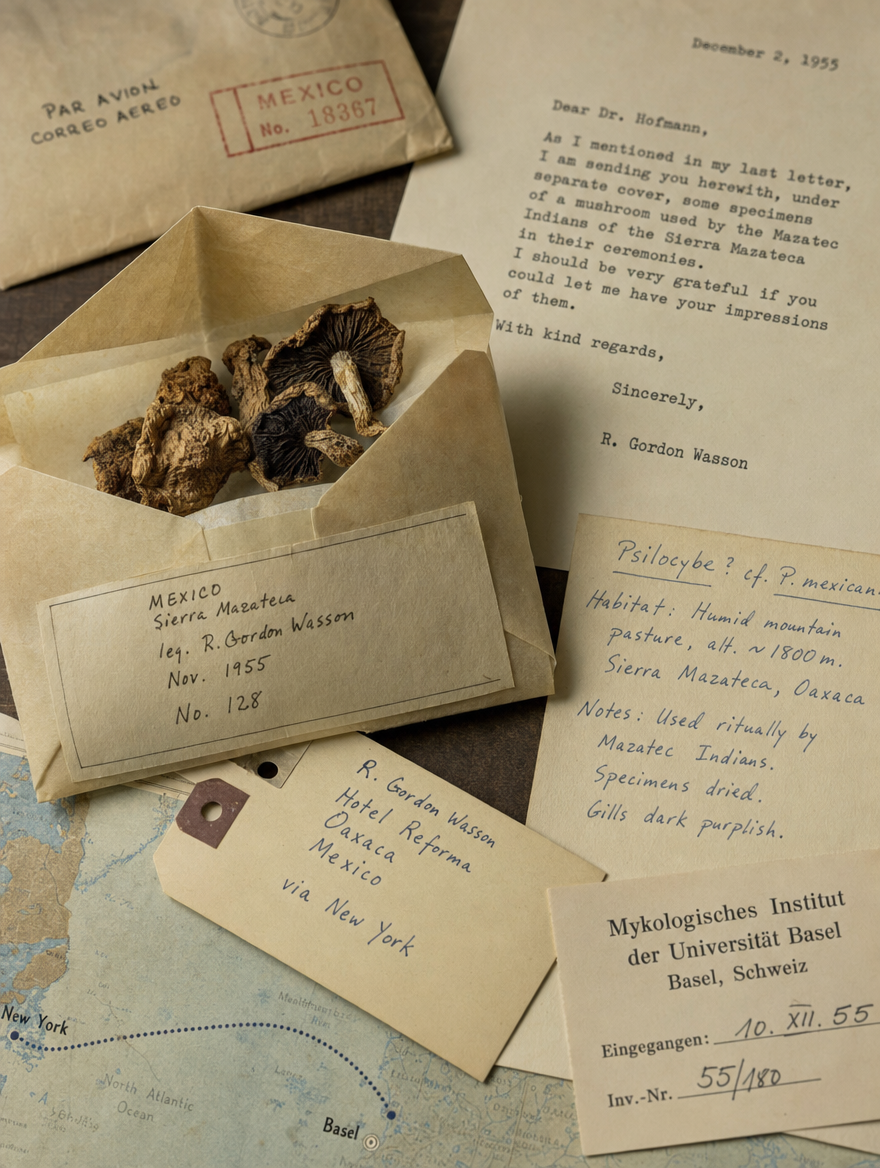 PAR AVION
CORREO AEREO
MEXICO
No. 18367
December 2, 1955
Dear Dr. Hofmann,
As I mentioned in my last letter,
I am sending you herewith, under
separate cover, some specimens
of a mushroom used by the Mazatec
Indians of the Sierra Mazateca
in their ceremonies.
I should be very grateful if you
could let me have your impressions
of them.
With kind regards,
Sincerely,
R. Gordon Wasson
MEXICO
Sierra Mazateca
leg. R. Gordon Wasson
Nov. 1955
No. 128
Psilocybe? cf. P. mexican
Habitat: Humid mountain
pasture, alt. ~1800 m.
Sierra Mazateca, Oaxaca
Notes: Used ritually by
Mazatec Indians.
Specimens dried.
Gills dark purplish.
R. Gordon Wasson
Hotel Reforma
Oaxaca
Mexico
via New York
Mykologisches Institut
der Universität Basel
Basel, Schweiz
Eingegangen: 10. XII. 55
Inv.-Nr. 55/180
New York
North Atlantic
Ocean
Basel